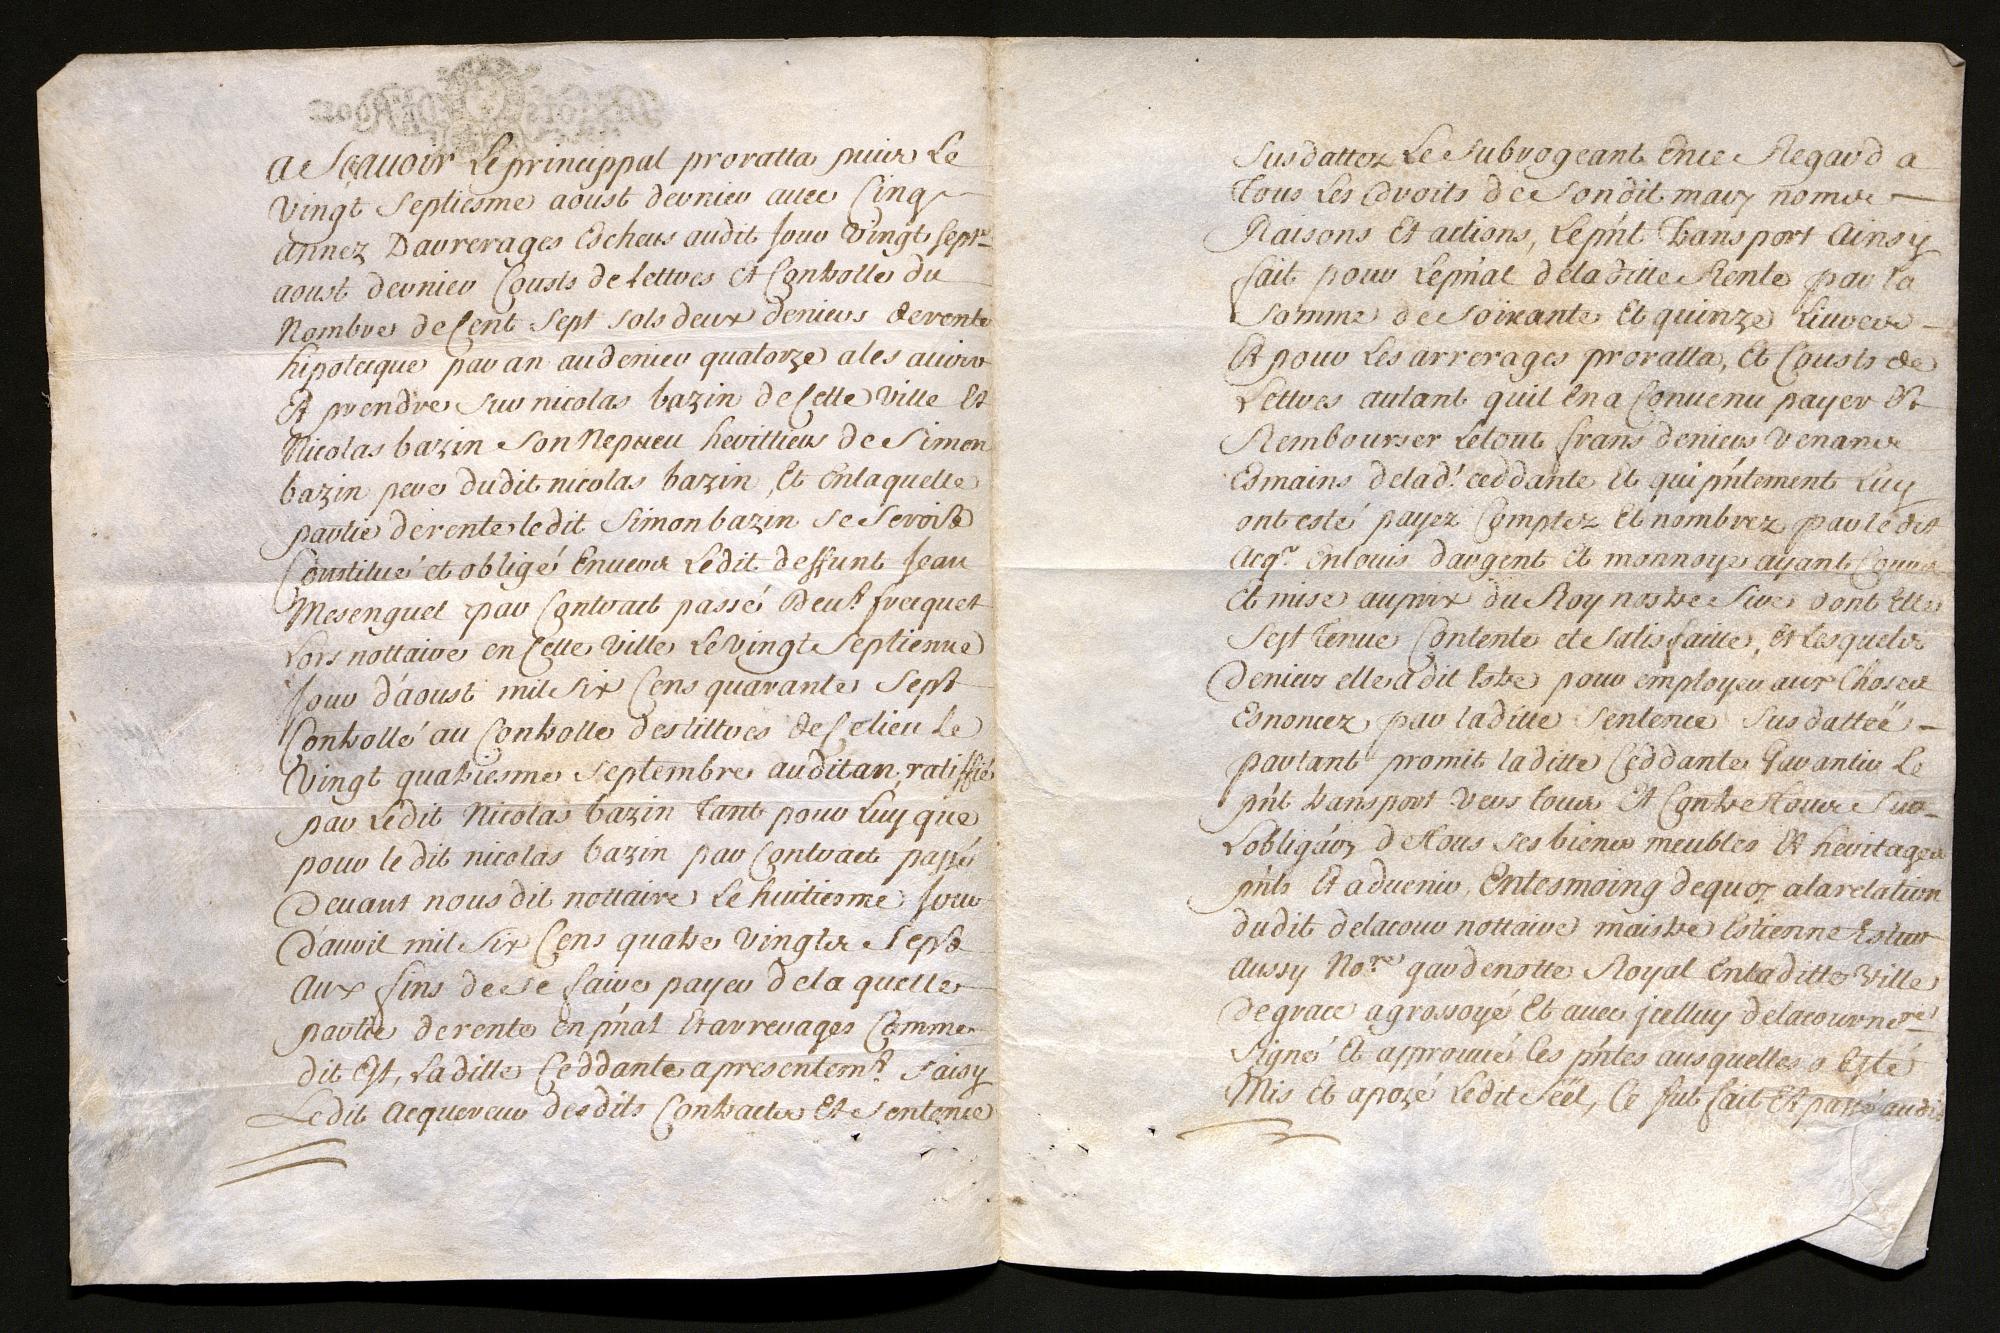 A Scauoir Le princippal proratta puis Le
Vingt Septiesme aoust dernier auec Cinq
Annez Darrerages Escheus audit Jour Vingt sept.e
aoust dernier Cousts de Lettres Et Controlle du
Nombre de Cent Sept Sols deux deniers de rente
hipotecque par an au denier quatorze a les auoir
Et prendre Sur nicolas bazin de Cette Ville Et
Nicolas bazin Son Nepueu herittiers de Simon
bazin pere dudit nicolas bazin, Et En laquelle
partie de rente ledit Simon bazin Se Seroit
Constitué et obligé Enuers Ledit deffunt Jean
Mesenguel par Contract passé Deut frecquet
Lors nottaire en Cette Ville Le Vingt Septienne
Jour d'aoust mil Six Cens quarante Sept
Controllé au Controlle des littres de Ce lieu Le
Vingt quatriesme Septembre audit an, ratiffié
par Ledit Nicolas bazin Tant pour Luy que
pour le dit nicolas bazin par Contract passé
Deuant nous dit nottaire Le huitiesme Jour
D'auril mil Six Cens quatre Vingts Sept
Aux fins de se faire payer de la quelle
partie de rente en pñal Et arrerages Comme
dit Est, La ditte Ceddante a presentemt. Saisy
Ledit Acquereur desdits Contracts Et Sentence
Susdattez Le Subrogeant En ce Regard a
Tous Les droits de Son dit mary nomse
Raisons Et actions, Le pñt Transport Ainsy
fait pour Le pñal de la ditte Rente par La
Somme de Soixante Et quinze Liures
Et pour Les arrerages proratta, Et Cousts de
Lettres autant quil En a Conuenu payer Et
Rembourser Le tout frans deniers Venans
Es mains de la d.t ceddante Et qui pñtement Luy
ont esté payez Comptez Et nombrez par le dit
Acqr En louis dargent Et monnoye ayant Cours
Et mise au prix du Roy nostre Sire dont Elle
Sest Tenue Contente et Satisfaitte, Et Lesquels
Deniers elle a dit Estre pour employer aux Choses
Esnoncez par la ditte Sentence Susdattée
partant promit la ditte Ceddante Garantir Le
pñt transport Vers tous Et Contre tous Sur
Lobligaon de tous Ses biens meubles Et heritages
pñts Et aduenir, En tesmoing de quoy a la relation
dudit delacour nottaire maistre Estienne Esteur
Aussy No.re gardenotte Royal En la ditte Ville
De grace a grossoyé Et auec jcelluy delacour n.re
Signé Et approuué Ces pñtes ausquelles a Esté
Mis Et aposé Ledit Séel, Ce fut fait Et passé audit